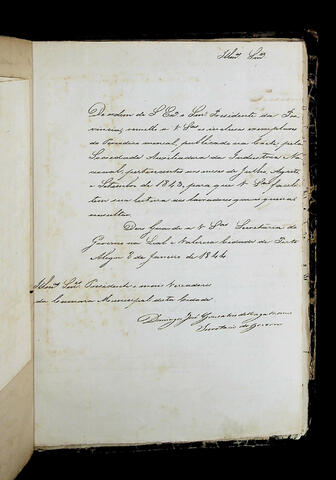 Illmos. Snrs.
De ordem de S. Exa. o Senr. Presidente da Pro-
vincia, remetto a V. Sas. os inclusos exemplares
do Periodico mensal, publicado na Corte pela
Sociedade Auxiliadora da Industria Na-
cional, pertencentes aos mezes de Julho, Agosto
e Setembro de 1843, para que V. Sas. facul-
tem sua leitura aos lavradores que os queirão
consultar.
Deos Guarde a V. Sas. Secretaria do
Governo na Leal e Valorosa Cidade de Porto
Alegre 2 de Janeiro de 1844
Illmos. Snrs. Presidente e mais Vereadores
da Camara Municipal desta Cidade
Domingos José Gonçalves de Magalhaens
Secretario do Governo